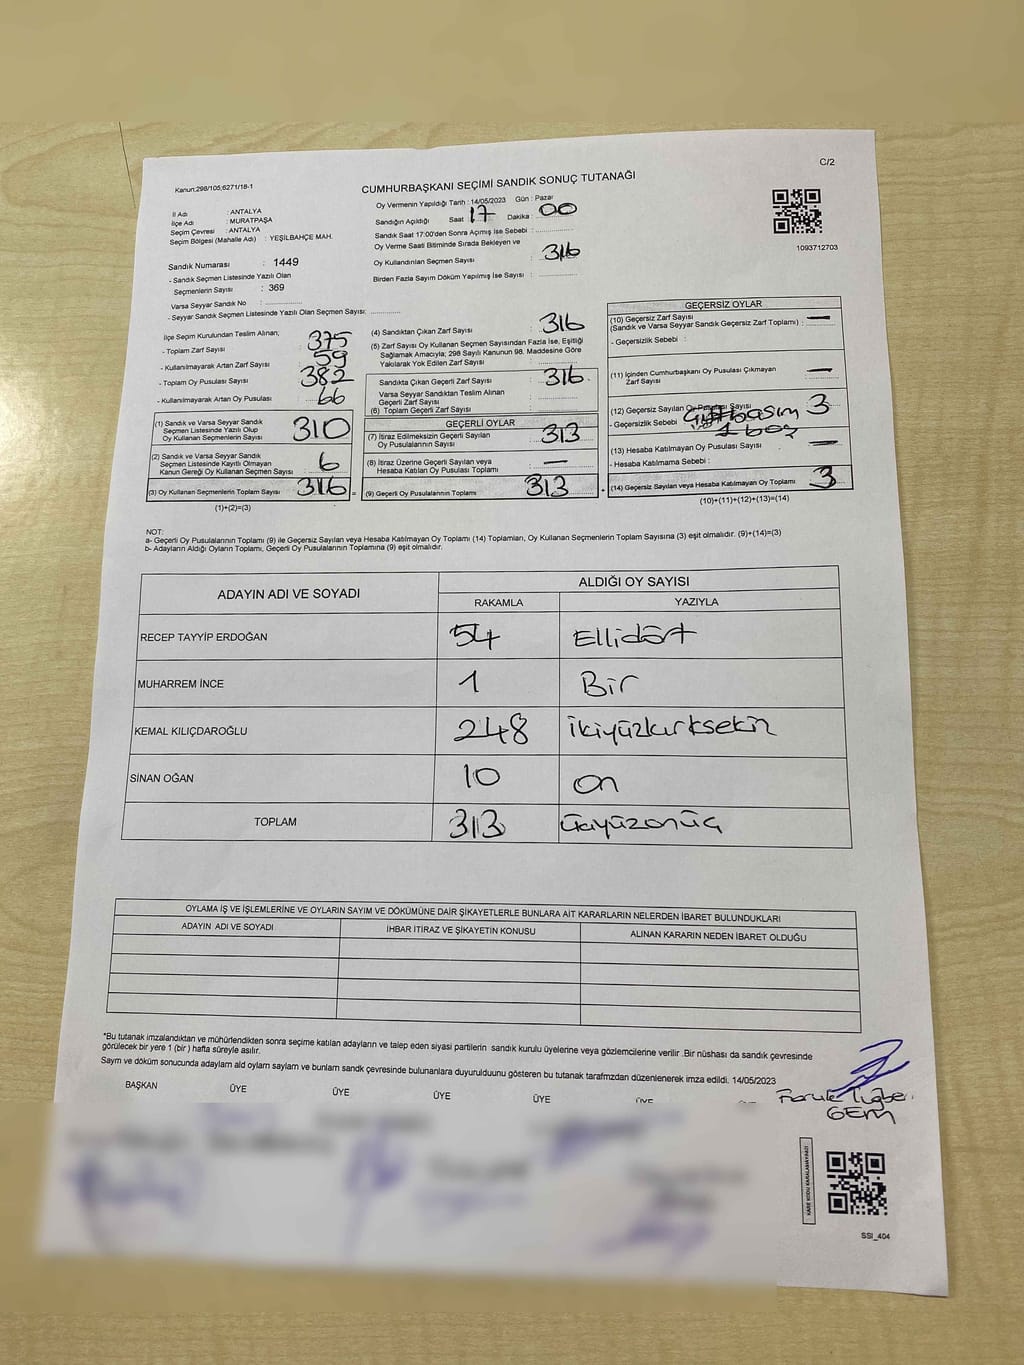 C/2
Kanun:298/105;6271/18-1
CUMHURBAŞKANI SEÇİMİ SANDIK SONUÇ TUTANAĞI
İl Adı : ANTALYA
İlçe Adı : MURATPAŞA
Seçim Çevresi : ANTALYA
Seçim Bölgesi (Mahalle Adı) : YEŞİLBAHÇE MAH.
Oy Vermenin Yapıldığı Tarih : 14/05/2023 Gün : Pazar
Sandığın Açıldığı Saat : 17 Dakika : 00
Sandık Saat 17:00'den Sonra Açımış İse Sebebi :
Oy Verme Saati Bitiminde Sırada Bekleyen ve
Oy Kullandırılan Seçmen Sayısı : 316
Birden Fazla Sayım Döküm Yapılmış İse Sayısı :
1093712703
Sandık Numarası : 1449
- Sandık Seçmen Listesinde Yazılı Olan
Seçmenlerin Sayısı : 369
Varsa Seyyar Sandık No :
- Seyyar Sandık Seçmen Listesinde Yazılı Olan Seçmen Sayısı:
İlçe Seçim Kurulundan Teslim Alınan;
- Toplam Zarf Sayısı : 375
- Kullanılmayarak Artan Zarf Sayısı : 59
- Toplam Oy Pusulası Sayısı : 382
- Kullanılmayarak Artan Oy Pusulası : 66
(1) Sandık ve Varsa Seyyar Sandık
Seçmen Listesinde Yazılı Olup
Oy Kullanan Seçmenlerin Sayısı : 310
(2) Sandık ve Varsa Seyyar Sandık
Seçmen Listesinde Kayıtlı Olmayan
Kanun Gereği Oy Kullanan Seçmen Sayısı : 6
(3) Oy Kullanan Seçmenlerin Toplam Sayısı : 316
(1)+(2)=(3)
(4) Sandıktan Çıkan Zarf Sayısı : 316
(5) Zarf Sayısı Oy Kullanan Seçmen Sayısından Fazla İse, Eşitliği
Sağlamak Amacıyla; 298 Sayılı Kanunun 98. Maddesine Göre
Yakılarak Yok Edilen Zarf Sayısı :
Sandıkta Çıkan Geçerli Zarf Sayısı : 316
Varsa Seyyar Sandıktan Teslim Alınan
Geçerli Zarf Sayısı :
(6) Toplam Geçerli Zarf Sayısı :
GEÇERLİ OYLAR
(7) İtiraz Edilmeksizin Geçerli Sayılan
Oy Pusulalarının Sayısı : 313
(8) İtiraz Üzerine Geçerli Sayılan veya
Hesaba Katılan Oy Pusulası Toplamı : —
(9) Geçerli Oy Pusulalarının Toplamı : 313
GEÇERSİZ OYLAR
(10) Geçersiz Zarf Sayısı
(Sandık ve Varsa Seyyar Sandık Geçersiz Zarf Toplamı) : —
- Geçersizlik Sebebi :
(11) İçinden Cumhurbaşkanı Oy Pusulası Çıkmayan
Zarf Sayısı : —
(12) Geçersiz Sayılan Oy Pusulası Sayısı : 3
- Geçersizlik Sebebi : basım
1 boş
(13) Hesaba Katılmayan Oy Pusulası Sayısı : —
- Hesaba Katılmama Sebebi :
(14) Geçersiz Sayılan veya Hesaba Katılmayan Oy Toplamı : 3
(10)+(11)+(12)+(13)=(14)
NOT:
a- Geçerli Oy Pusulalarının Toplamı (9) ile Geçersiz Sayılan veya Hesaba Katılmayan Oy Toplamı (14) Toplamları, Oy Kullanan Seçmenlerin Toplam Sayısına (3) eşit olmalıdır. (9)+(14)=(3)
b- Adayların Aldığı Oyların Toplamı, Geçerli Oy Pusulalarının Toplamına (9) eşit olmalıdır.
ADAYIN ADI VE SOYADI ALDIĞI OY SAYISI
RAKAMLA YAZIYLA
RECEP TAYYİP ERDOĞAN 54 Ellidört
MUHARREM İNCE 1 Bir
KEMAL KILIÇDAROĞLU 248 ikiyüzkırksekiz
SİNAN OĞAN 10 on
TOPLAM 313 üçyüzonüç
OYLAMA İŞ VE İŞLEMLERİNE VE OYLARIN SAYIM VE DÖKÜMÜNE DAİR ŞİKAYETLERLE BUNLARA AİT KARARLARIN NELERDEN İBARET BULUNDUKLARI
ADAYIN ADI VE SOYADI İHBAR İTİRAZ VE ŞİKAYETİN KONUSU ALINAN KARARIN NEDEN İBARET OLDUĞU
*Bu tutanak imzalandıktan ve mühürlendikten sonra seçime katılan adayların ve talep eden siyasi partilerin sandık kurulu üyelerine veya gözlemcilerine verilir .Bir nüshası da sandık çevresinde
görülecek bir yere 1 (bir ) hafta süreyle asılır.
Sayım ve döküm sonucunda adayların aldığı oyların sayları ve bunların sandık çevresinde bulunanlara duyurulduğunu gösteren bu tutanak tarafımızdan düzenlenerek imza edildi. 14/05/2023
BAŞKAN ÜYE ÜYE ÜYE ÜYE ÜYE
GEM
KARE KODU KARALAMAYINIZ!
SSI_404